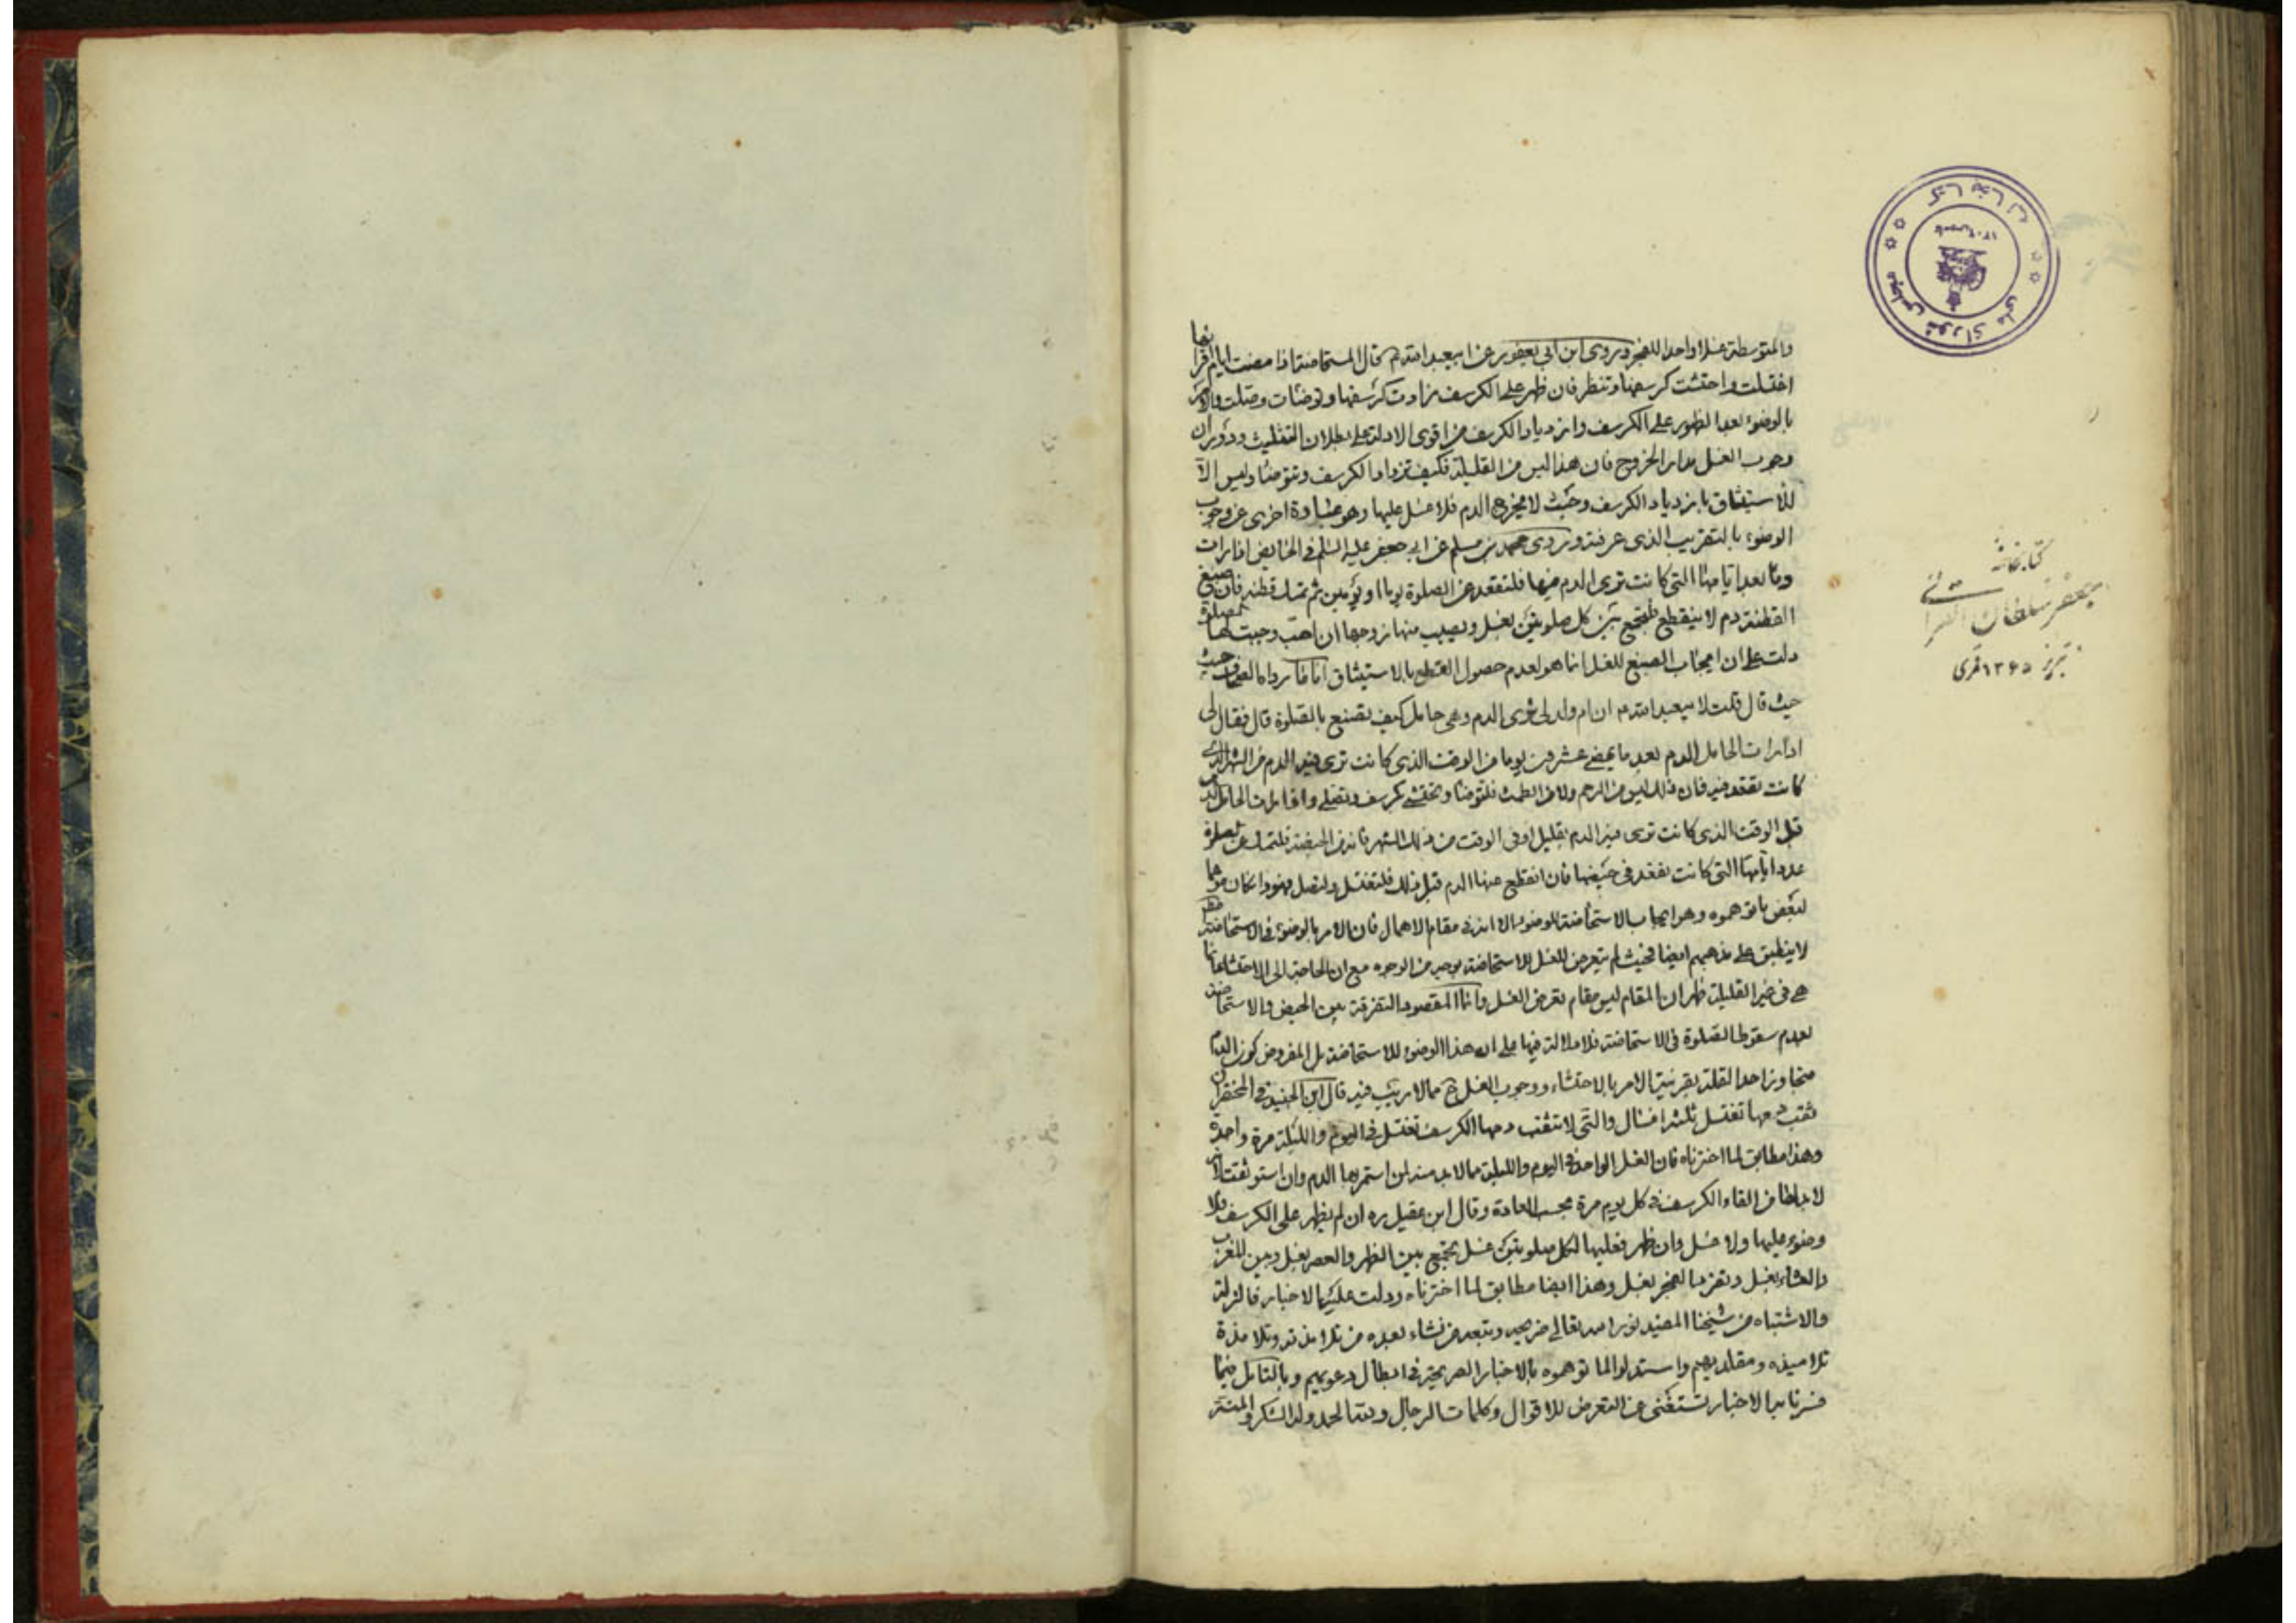 والمتوسطة غسلا واحدا للفجر وروى ابن ابي يعفور عن ابيعبد الله م قال المستحاضة اذا مضت ايام اقرائها
اغتسلت واحتشت كرسفها وتنظر فان ظهر على الكرسف زادت كرسفها وتوضئات وصلت والامر
بالوضوء بعد الظهور على الكرسف وازدياد الكرسف من اقوى الادلة على بطلان التثليث ودوران
وجوب الغسل مدار الخروج فان هذا ليس من القليلة فكيف تزداد الكرسف وتتوضئا وليس الا
للاستيثاق بازدياد الكرسف وحيث لا يخرج الدم فلا غسل عليها وهو عبارة اخرى عن وجوب
الوضوء بالتقريب الذى عرفته وروى محمد بن مسلم عن ابي جعفر عليه السلم فى الحايض اذا رات
دما بعد ايامها التى كانت ترى الدم فيها فلتقعد عن الصلوة يوما او يومين ثم تمسك قطنة فان صبغ
القطنة دم لا ينقطع فلتجمع بين كل صلوتين بغسل ويصيب منها زوجها ان احب وحلت لها الصلوة
دلت على ان ايجاب الصبغ للغسل انما هو لعدم حصول القطع بالاستيثاق
حيث قال قلت لابيعبد الله م ان ام ولدى ترى الدم وهى حامل كيف تصنع بالصلوة قال فقال لى
اذا رات الحامل الدم بعد ما يمضى عشرون يوما من الوقت الذى كانت ترى فيه الدم من الشهر الذى
كانت تقعد فيه فان ذلك ليس من الرحم ولا من الطمث فلتوضئا وتحتشى بكرسف وتصلى واذا رات الحامل الدم
قبل الوقت الذى كانت ترى فيه الدم بقليل او فى الوقت من ذلك الشهر فانه من الحيضة فلتمسك عن الصلوة
عدد ايامها التى كانت تقعد فى حيضها فان انقطع عنها الدم قبل ذلك فلتغتسل ولتصل فهو وان كان موهما
لبعض ما توهموه وهو ايجاب الاستحاضة للوضوء الا انه فى مقام الاهمال فان الامر بالوضوء فى الاستحاضة
لا ينطبق على مذهبهم ايضا فحيث لم يتعرض للغسل للاستحاضة بوجه من الوجوه مع ان الحاجة الى الاحتشاء انما
هى فى غير القليلة ظهر ان المقام ليس مقام تعرض الغسل وانما المقصود التفرقة بين الحيض والاستحاضة
بعدم سقوط الصلوة فى الاستحاضة فلا دلالة فيها على ان هذا الوضوء للاستحاضة بل المفروض كون الدم
متجاوزا حد القلة بقرينة الامر بالاحتشاء ووجوب الغسل ح مما لا ريب فيه قال ابن الجنيد فى المختصر ان
ثقب دمها تغتسل ثلثة اغسال والتى لا تثقب دمها الكرسف تغتسل فى اليوم والليلة مرة واحدة
وهذا مطابق لما اخترناه فان الغسل الواحد فى اليوم والليلة مما لا بد منه لمن استمر بها الدم وان استوثقت لانه
لا بد لها من القاء الكرسف فى كل يوم مرة بحسب العادة وقال ابن عقيل ره ان لم يظهر على الكرسف فلا
وضوء عليها ولا غسل وان ظهر فعليها لكل صلوتين غسل تجمع بين الظهر والعصر بغسل وبين المغرب
والعشاء بغسل وتفرد الفجر بغسل وهذا ايضا مطابق لما اخترناه ودلت عليه الاخبار فالزلة
والاشتباه من شيخنا المفيد نور الله تعالى ضريحه وتبعه من نشاء بعده من تلامذته وتلامذة
تلاميذه ومقلديهم واستدلوا لما توهموه بالاخبار الصريحة فى ابطال دعويهم وبالتامل فيما
فسرنا به الاخبار تستغنى عن التعرض للاقوال وكلمات الرجال ولله الحمد وله الشكر والمنة
كتابخانه
مجلس شوراى ملى
كتابخانه
جعفر سلطان القرائى
تبريز ١٣٦٥ قمرى